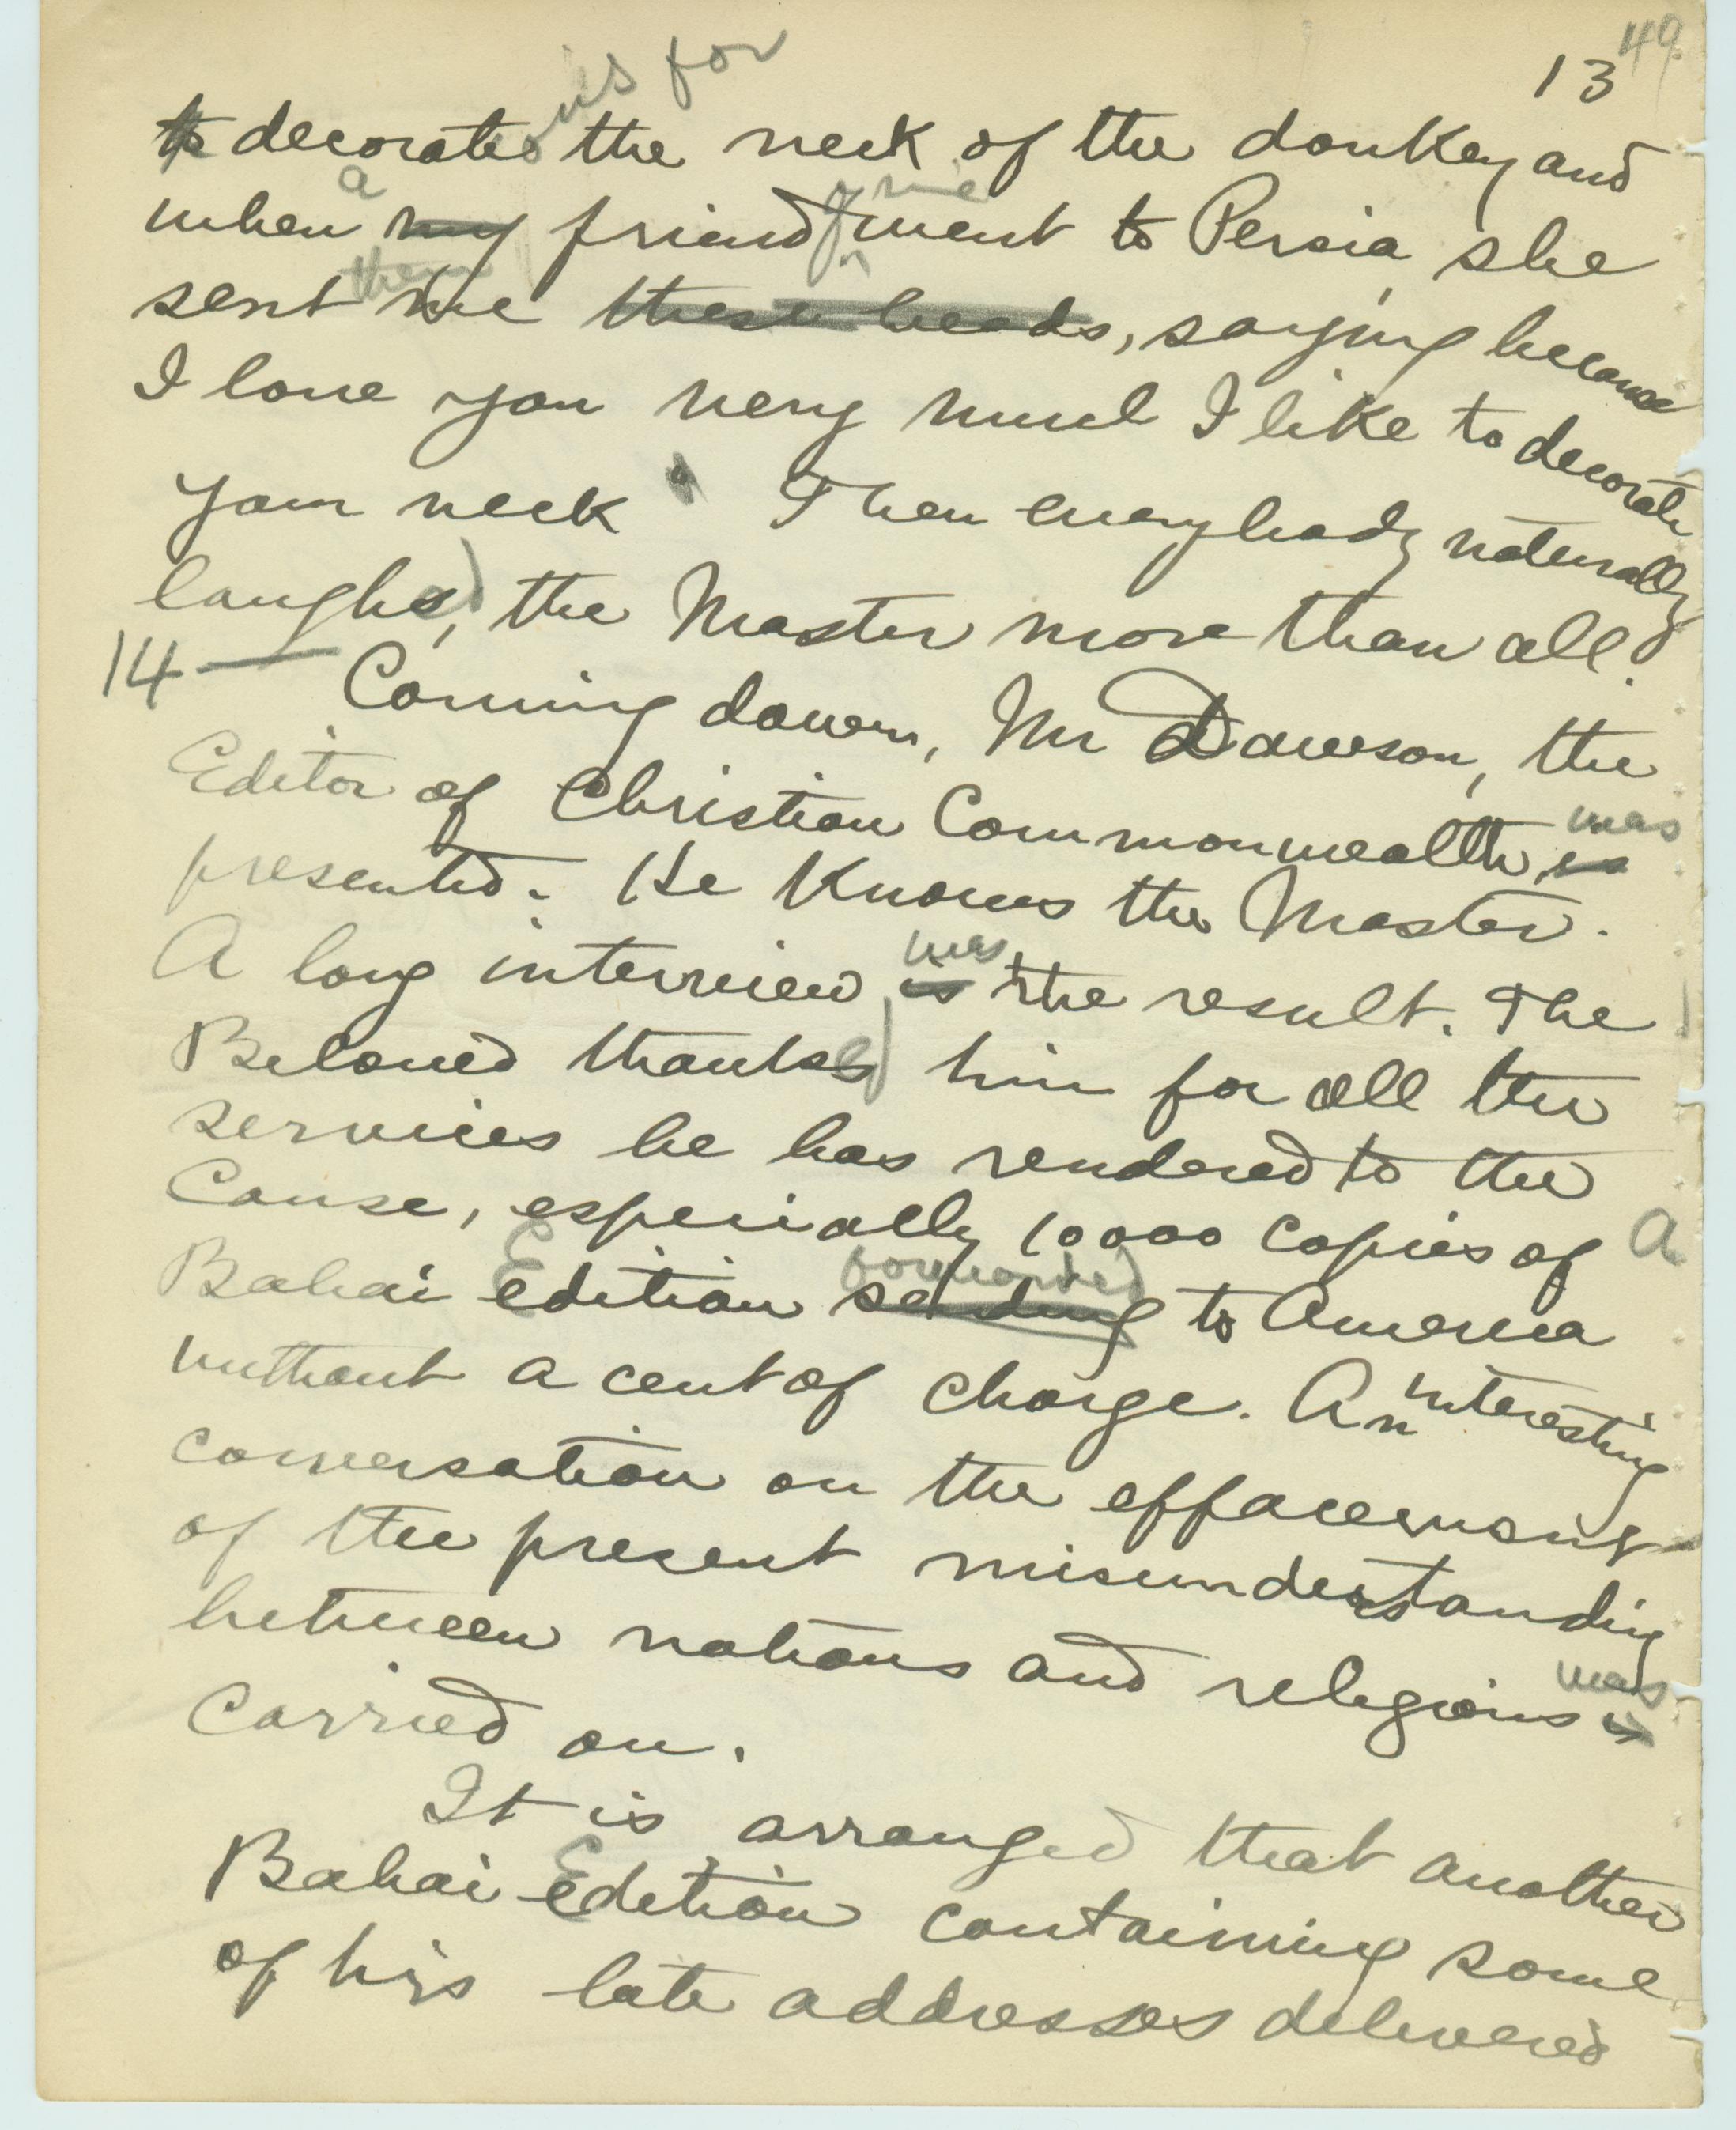 49
13
ons for
to decorate the neck of the donkey and
a
of mine
when my friend went to Persia, she
them
sent me these beads, saying because
I love you very much I like to decorate
your neck" Then everybody naturally
laughed, the Master more than all.
14 —
Coming down, Mr Dawson, the
was
Editor of Christian Commonwealth, is
presented. He knows the Master.
was
A long interview is the result. The
Beloved thanked him for all the
services he has rendered to the
Cause, especially 10000 copies of a
forwarded
Bahai Edition sending to America
without a cent of charge. An interesting
conversation on the effacement
of the present misunderstanding
between nations and religions is
was
carried on.
It is arranged that another
Bahai Edition containing some
of his late addresses delivered